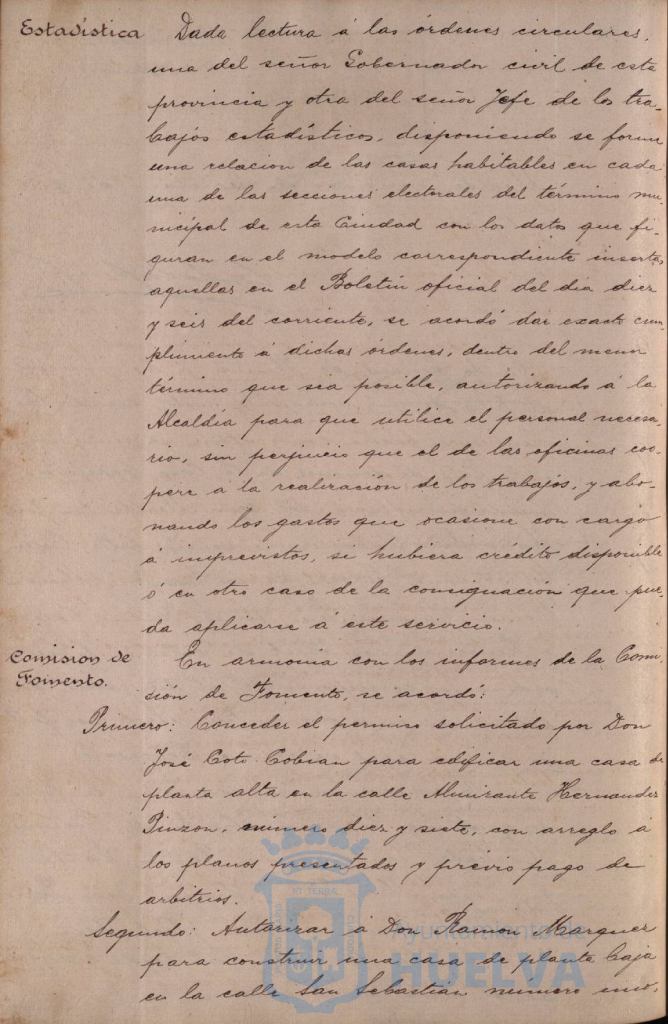 Estadística
Dada lectura á las órdenes circulares,
una del señor Gobernador civil de esta
provincia y otra del señor Jefe de los tra-
bajos estadísticos, disponiendo se forme
una relacion de las casas habitables en cada
una de las secciones electorales del término mu-
nicipal de esta Ciudad con los datos que fi-
guran en el modelo correspondiente insertas
aquellas en el Boletin oficial del dia diez
y seis del corriente, se acordó dar exacto cum-
plimiento á dichas órdenes, dentro del menor
término que sea posible, autorizando á la
Alcaldía para que utilice el personal necesa-
rio, sin perjuicio que el de las oficinas coo-
pere á la realización de los trabajos, y abo-
nando los gastos que ocasione con cargo
á imprevistos, si hubiera crédito disponible
ó en otro caso de la consignación que pue-
da aplicarse á este servicio.
Comision de
Fomento.
En armonia con los informes de la Comi-
sión de Fomento, se acordó:
Primero: Conceder el permiso solicitado por Don
José Coto Cobian para edificar una casa de
planta alta en la calle Almirante Hernandez
Pinzon, número diez y siete, con arreglo á
los planos presentados y prévio pago de
arbitrios.
Segundo: Autorizar á Don Ramón Marquez
para construir una casa de planta baja
en la calle San Sebastián número
Ayuntamiento de
HUELVA